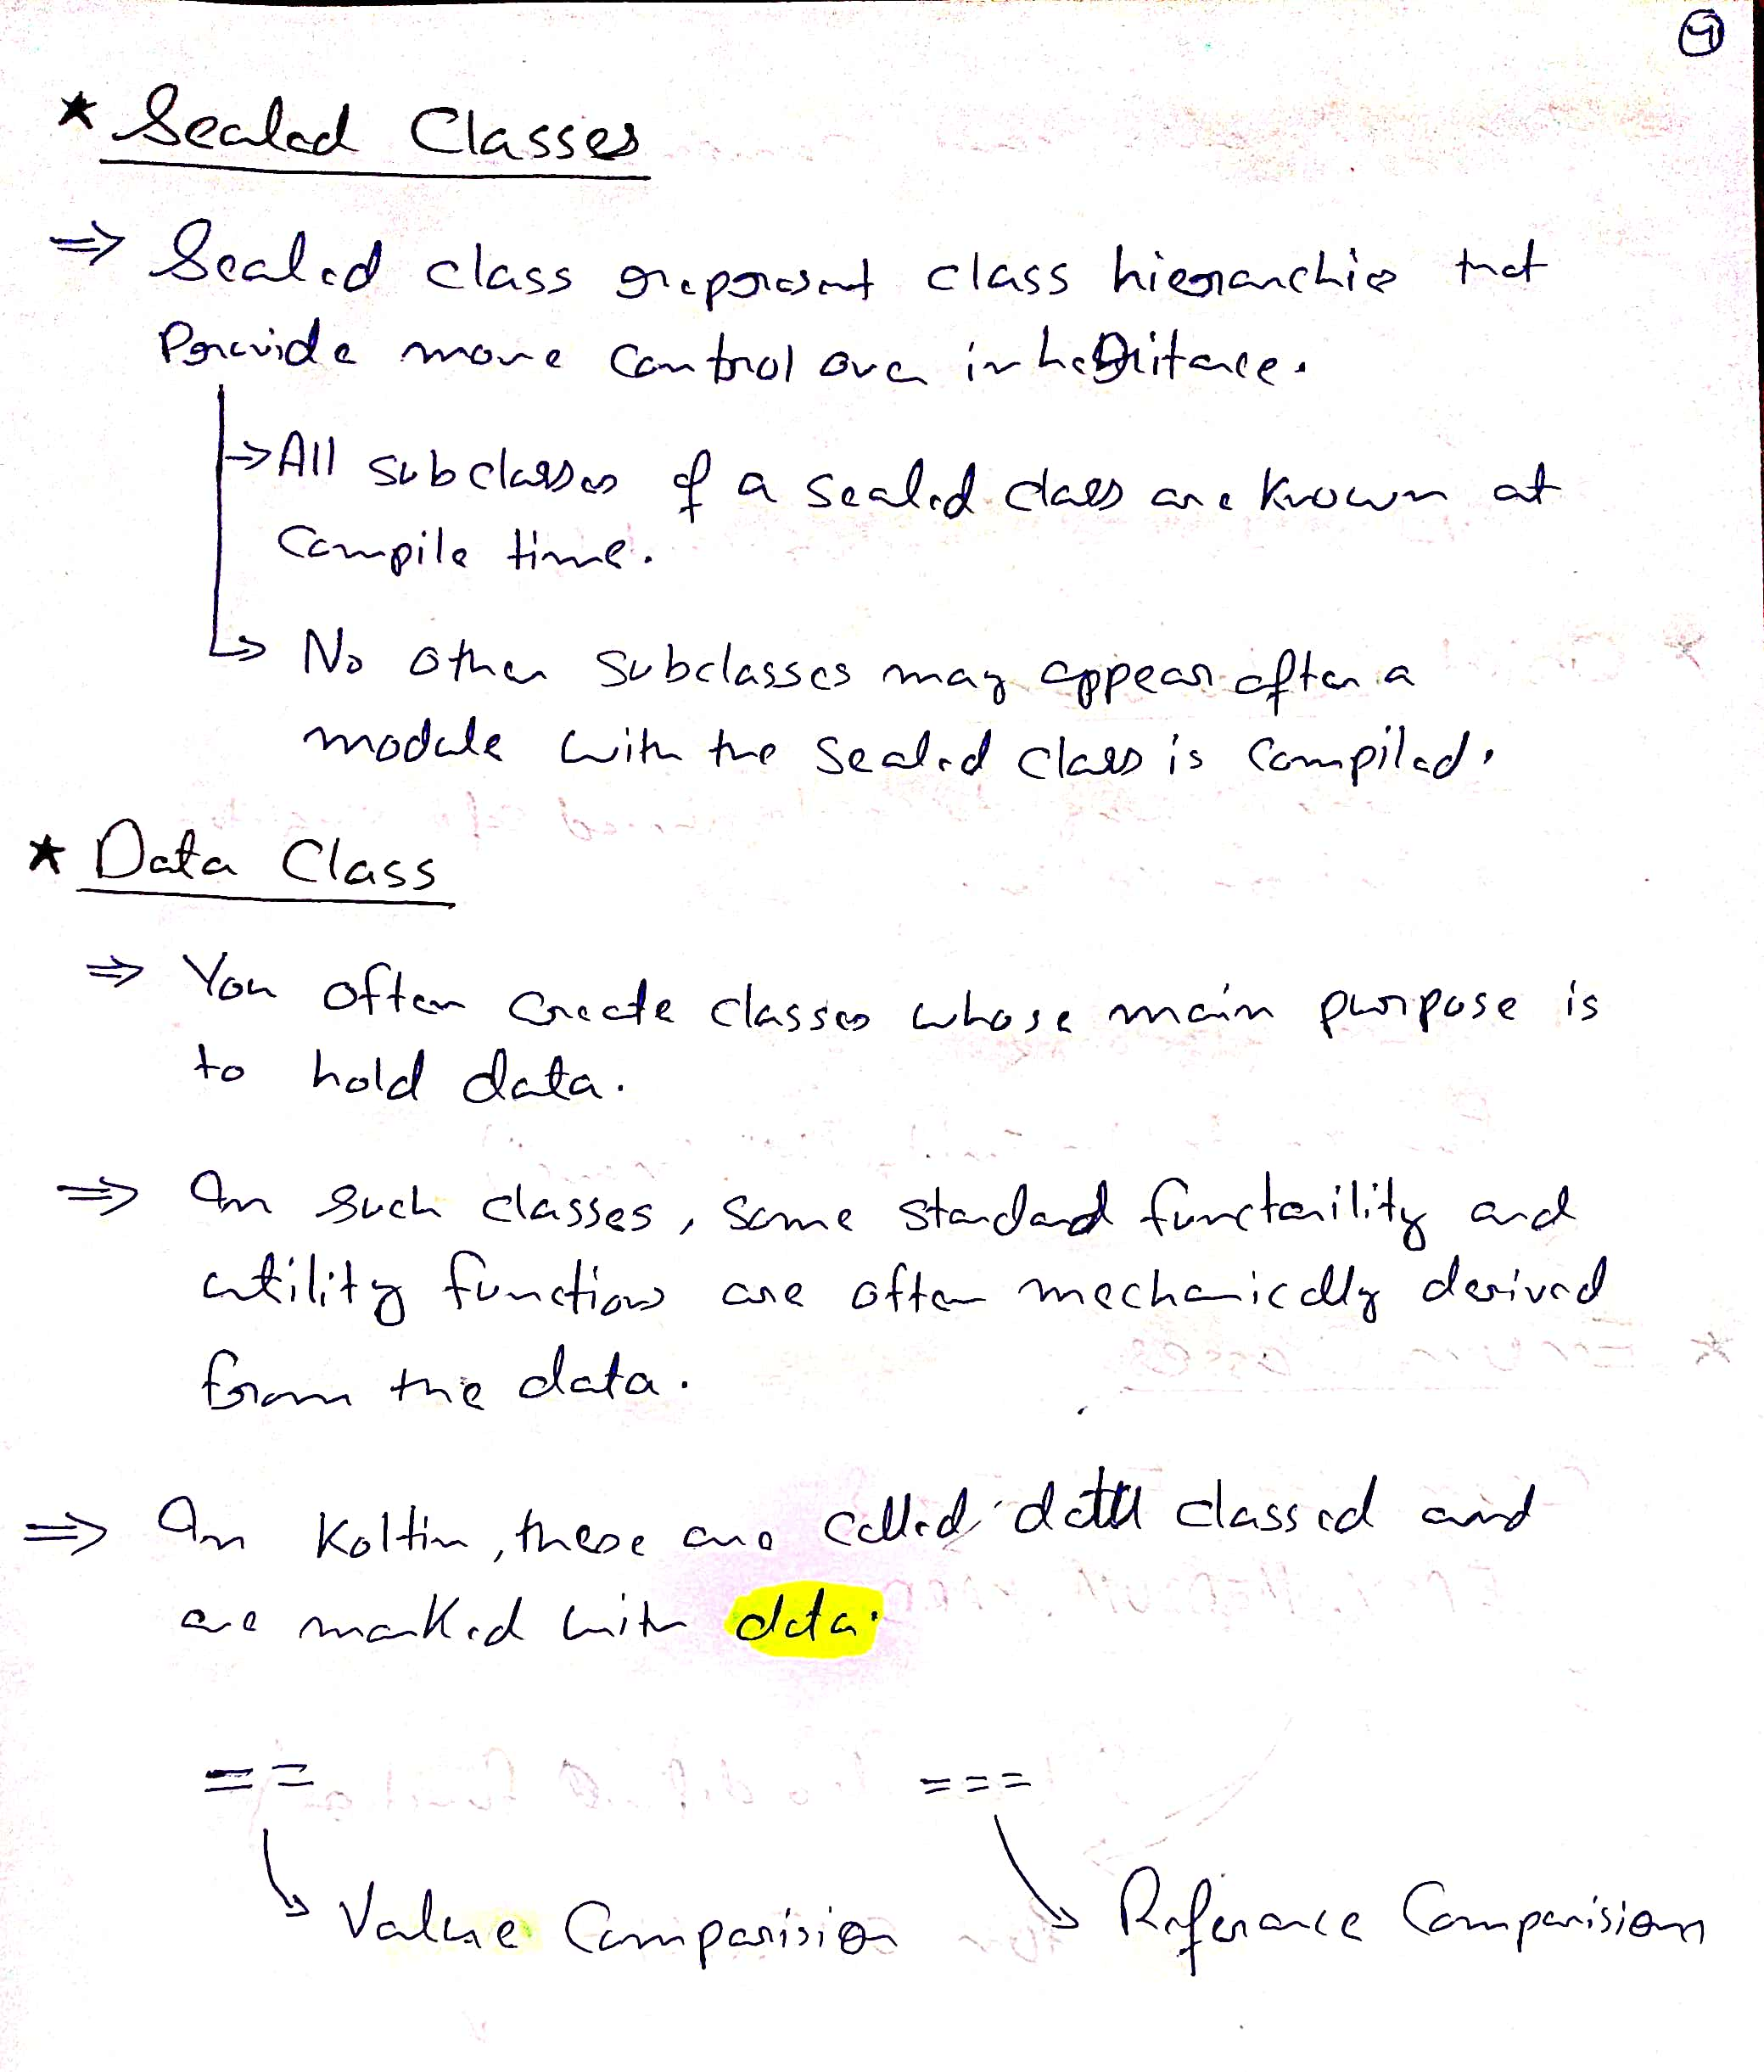 9
* Sealed Classes
⇒ Sealed class represent class hierarchies that
Provide more control over inheritance.
→ All subclasses of a sealed class are known at
Compile time.
↳ No other subclasses may appear after a
module with the sealed class is compiled.
* Data Class
⇒ You often create classes whose main purpose is
to hold data.
⇒ In such classes, some standard functarility and
utility functions are often mechanically derived
from the data.
⇒ In Koltin, these are called data classed and
are marked with data.
== ===
Value Comparision Reference Comparision